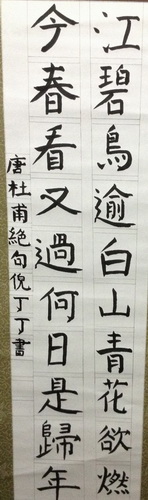 江碧鳥逾白山青花欲燃
今春看又過何日是歸年
唐杜甫絕句倪丁丁書